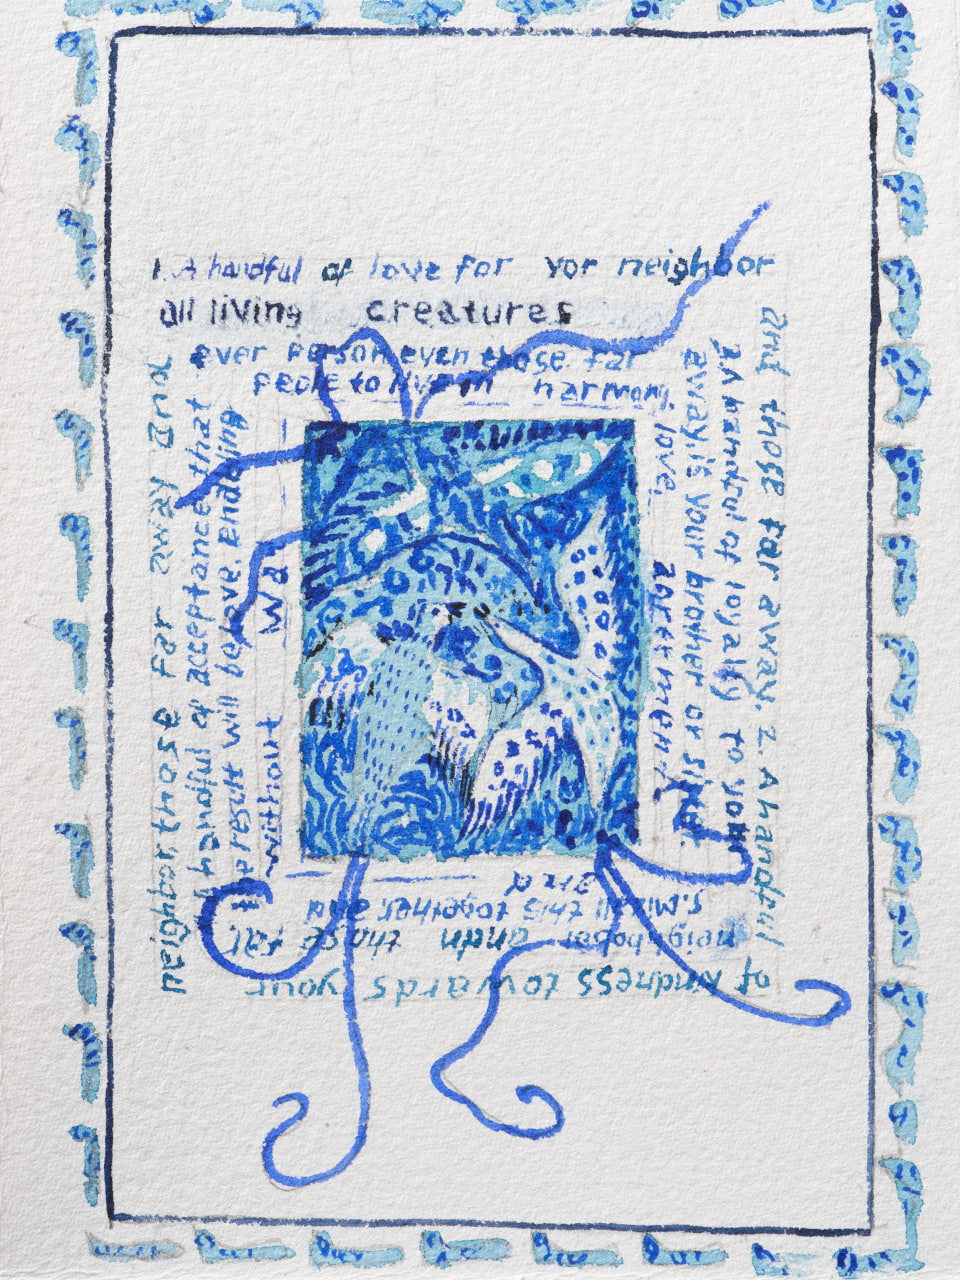 1. A handful of love for yor neighbor
all living creatures
ever person even those far
peole to live in harmony.
and those far away. 2. A handful
handful of loyalty to your
away, is your brother or
love,
of kindness towards your
those far
this together, and
neighbor, those far away and
handful of acceptance that
the result will be love,
without wa